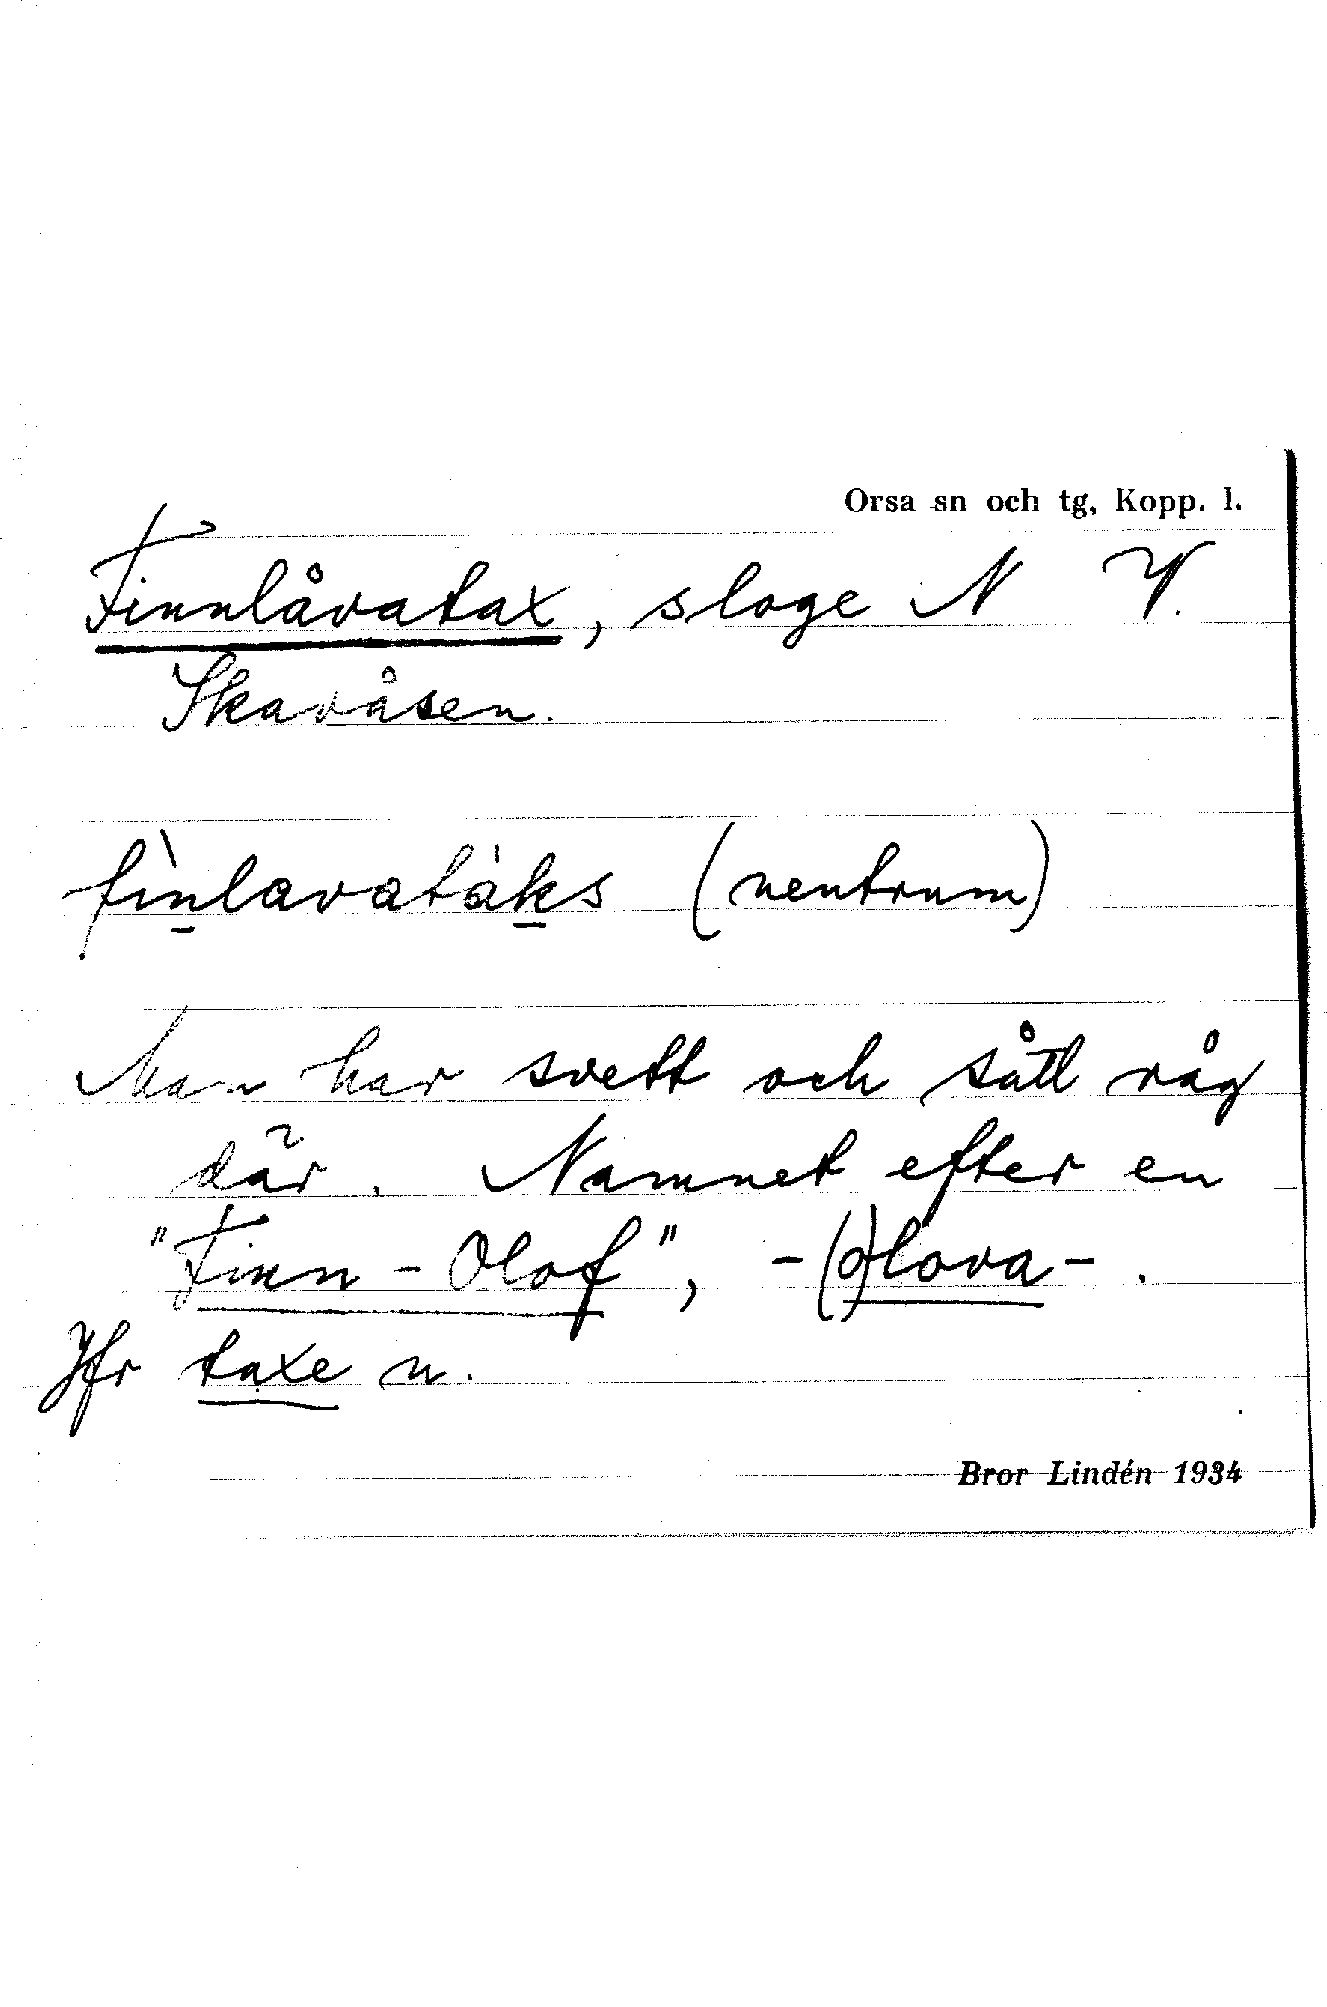 Orsa sn och tg, Kopp. l.
Finnlåvatax, sloge N V.
Skavåsen.
fìnlavatàks (neutrum)
Man har svett och sått råg
där. Namnet efter en
"Finn-Olof", -(o)lova-.
Jfr taxe n.
Bror Lindén 1934